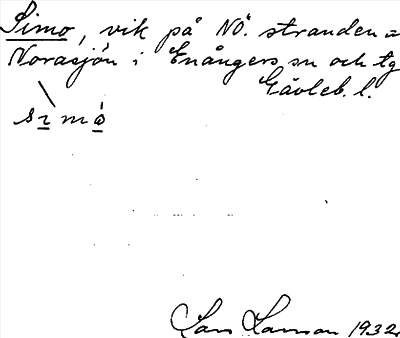 Simo, vik på NÖ. stranden =
Norasjön i Enångers sn och tg
Gävleb. l.
sìmó
Lars Larsson 1932.